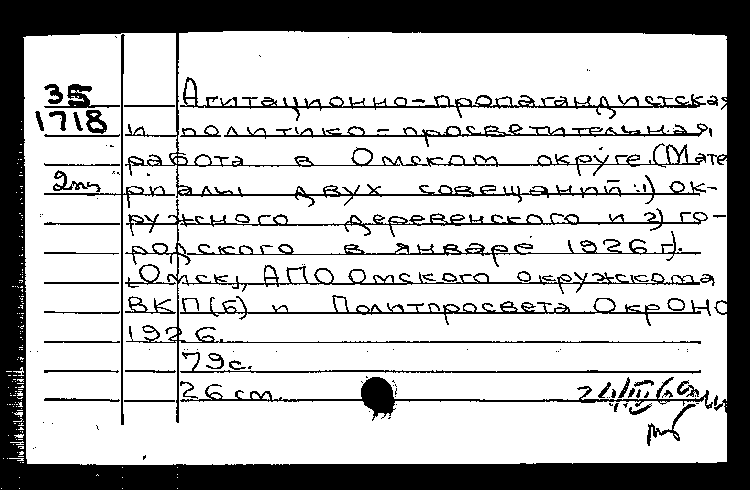 35
1718
2 экз
Агитационно-пропагандистская
и политико-просветительная
работа в Омском округе. (Мате
риалы двух совещаний: 1) ок-
ружного деревенского и 2) го-
родского в январе 1926 г.).
[Омск], АПО Омского окружскома
ВКП(б) и Политпросвета ОкрОНО
1926.
79 с.
26 см.
24/IV 69